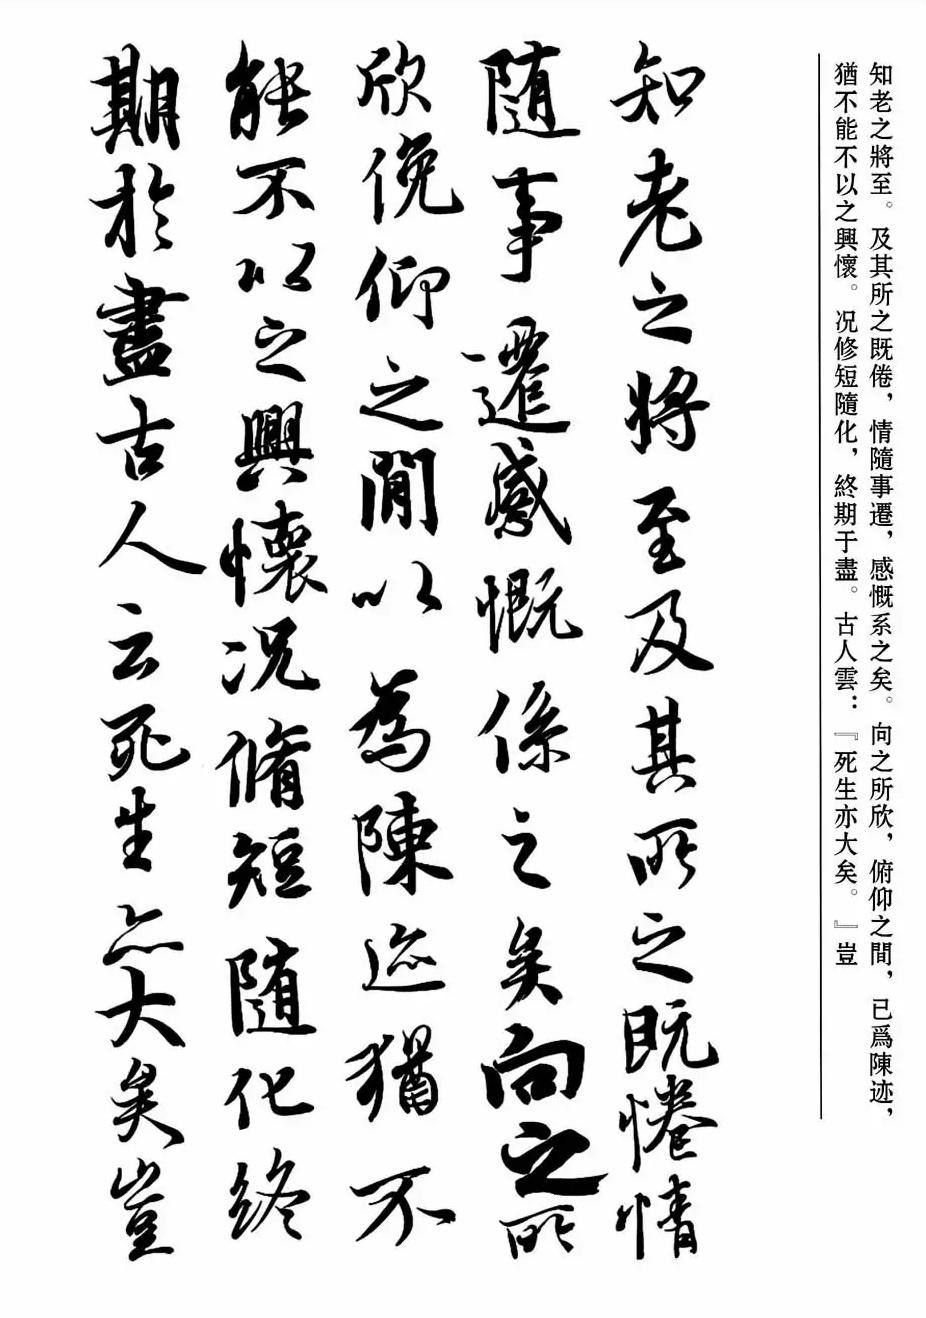 知老之將至。及其所之既倦，情隨事遷，感慨系之矣。向之所欣，俯仰之間，已爲陳迹，
猶不能不以之興懷。况修短隨化，終期于盡。古人雲：『死生亦大矣。』豈
知老之將至及其所之既惓情
隨事遷感慨係之矣向之所
欣俛仰之閒以為陳迹猶不
能不以之興懷况脩短隨化終
期於盡古人云死生亦大矣豈